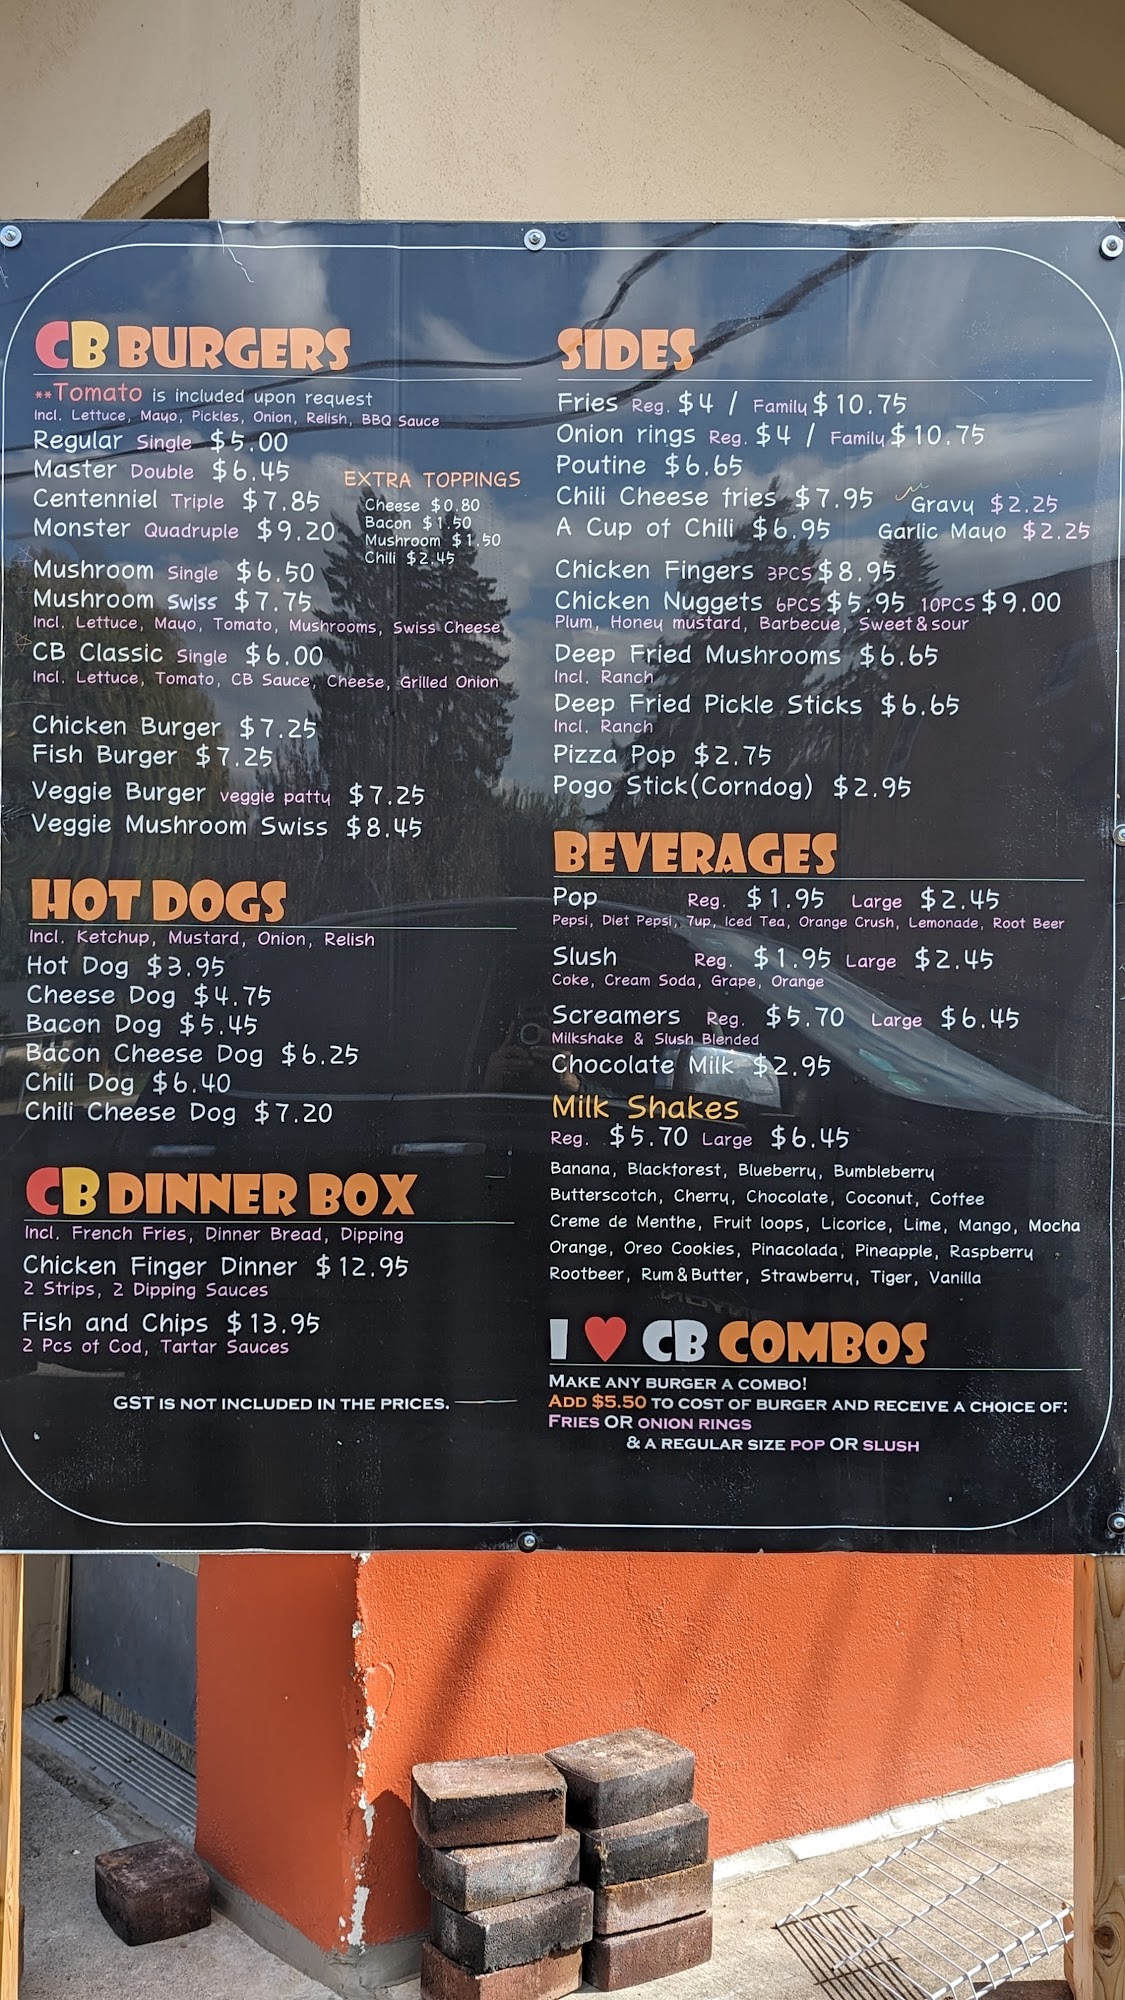 CB BURGERS
**Tomato is included upon request
Incl. Lettuce, Mayo, Pickles, Onion, Relish, BBQ Sauce
Regular Single $5.00
Master Double $6.45
Centenniel Triple $7.85
Monster Quadruple $9.20
EXTRA TOPPINGS
Cheese $0.80
Bacon $1.50
Mushroom $1.50
Chili $2.45
Mushroom Single $6.50
Mushroom Swiss $7.75
Incl. Lettuce, Mayo, Tomato, Mushrooms, Swiss Cheese
CB Classic Single $6.00
Incl. Lettuce, Tomato, CB Sauce, Cheese, Grilled Onion
Chicken Burger $7.25
Fish Burger $7.25
Veggie Burger veggie patty $7.25
Veggie Mushroom Swiss $8.45
HOT DOGS
Incl. Ketchup, Mustard, Onion, Relish
Hot Dog $3.95
Cheese Dog $4.75
Bacon Dog $5.45
Bacon Cheese Dog $6.25
Chili Dog $6.40
Chili Cheese Dog $7.20
CB DINNER BOX
Incl. French Fries, Dinner Bread, Dipping
Chicken Finger Dinner $12.95
2 Strips, 2 Dipping Sauces
Fish and Chips $13.95
2 Pcs of Cod, Tartar Sauces
GST IS NOT INCLUDED IN THE PRICES.
SIDES
Fries Reg. $4 / Family $10.75
Onion rings Reg. $4 / Family $10.75
Poutine $6.65
Chili Cheese fries $7.95 Gravy $2.25
A Cup of Chili $6.95 Garlic Mayo $2.25
Chicken Fingers 3PCS $8.95
Chicken Nuggets 6PCS $5.95 10PCS $9.00
Plum, Honey mustard, Barbecue, Sweet & sour
Deep Fried Mushrooms $6.65
Incl. Ranch
Deep Fried Pickle Sticks $6.65
Incl. Ranch
Pizza Pop $2.75
Pogo Stick(Corndog) $2.95
BEVERAGES
Pop Reg. $1.95 Large $2.45
Pepsi, Diet Pepsi, 7up, Iced Tea, Orange Crush, Lemonade, Root Beer
Slush Reg. $1.95 Large $2.45
Coke, Cream Soda, Grape, Orange
Screamers Reg. $5.70 Large $6.45
Milkshake & Slush Blended
Chocolate Milk $2.95
Milk Shakes
Reg. $5.70 Large $6.45
Banana, Blackforest, Blueberry, Bumbleberry
Butterscotch, Cherry, Chocolate, Coconut, Coffee
Creme de Menthe, Fruit loops, Licorice, Lime, Mango, Mocha
Orange, Oreo Cookies, Pinacolada, Pineapple, Raspberry
Rootbeer, Rum & Butter, Strawberry, Tiger, Vanilla
I ♥ CB COMBOS
MAKE ANY BURGER A COMBO!
ADD $5.50 TO COST OF BURGER AND RECEIVE A CHOICE OF:
FRIES OR ONION RINGS
& A REGULAR SIZE POP OR SLUSH